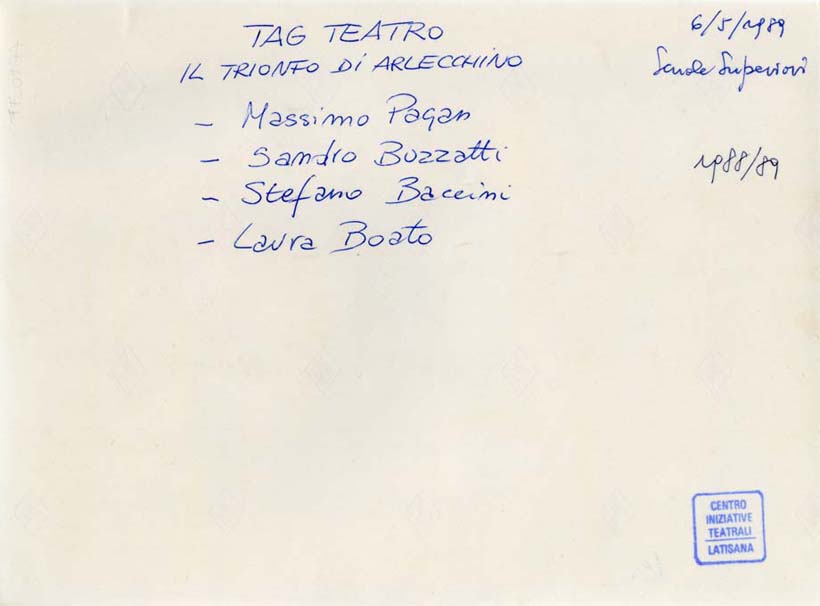 TAG TEATRO
IL TRIONFO Di ARLECCHINO
- Massimo Pagan
- Sandro Buzzatti
- Stefano Baccini
- Laura Boato
6/5/1989
Scuole Superiori
1988/89
CENTRO
INIZIATIVE
TEATRALI
LATISANA